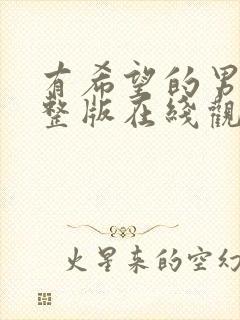 有希望的男
整版在綫觀
火星来的空幻